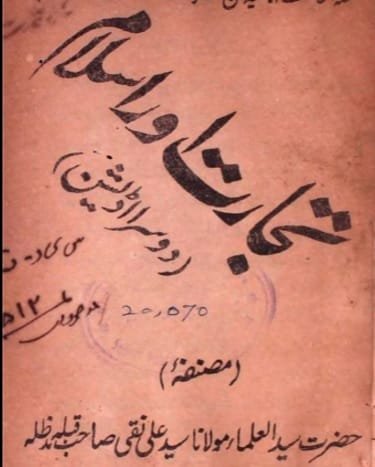 تجارت اور اسلام
(دوسرا اڈیشن)
20,070
(مصنفہٗ)
حضرت سید العلماء مولانا سید علی نقی صاحب قبلہ مدظلہ